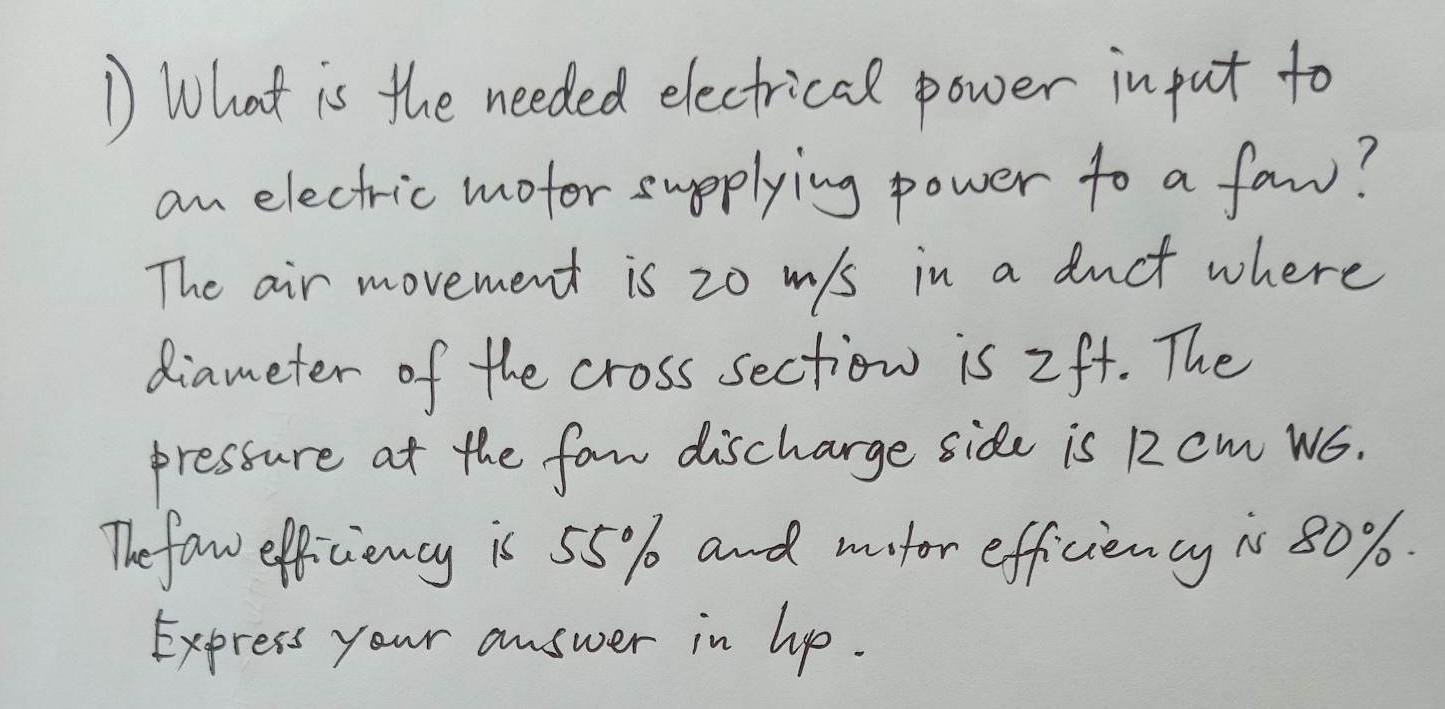 1) What is the needed electrical power input to
an electric motor supplying power to a fan?
The air movement is 20 m/s in a duct where
diameter of the cross section is 2ft. The
pressure at the fan discharge side is 12 cm WG.
The fan efficiency is 55% and motor efficiency is 80%.
Express your answer in hp.